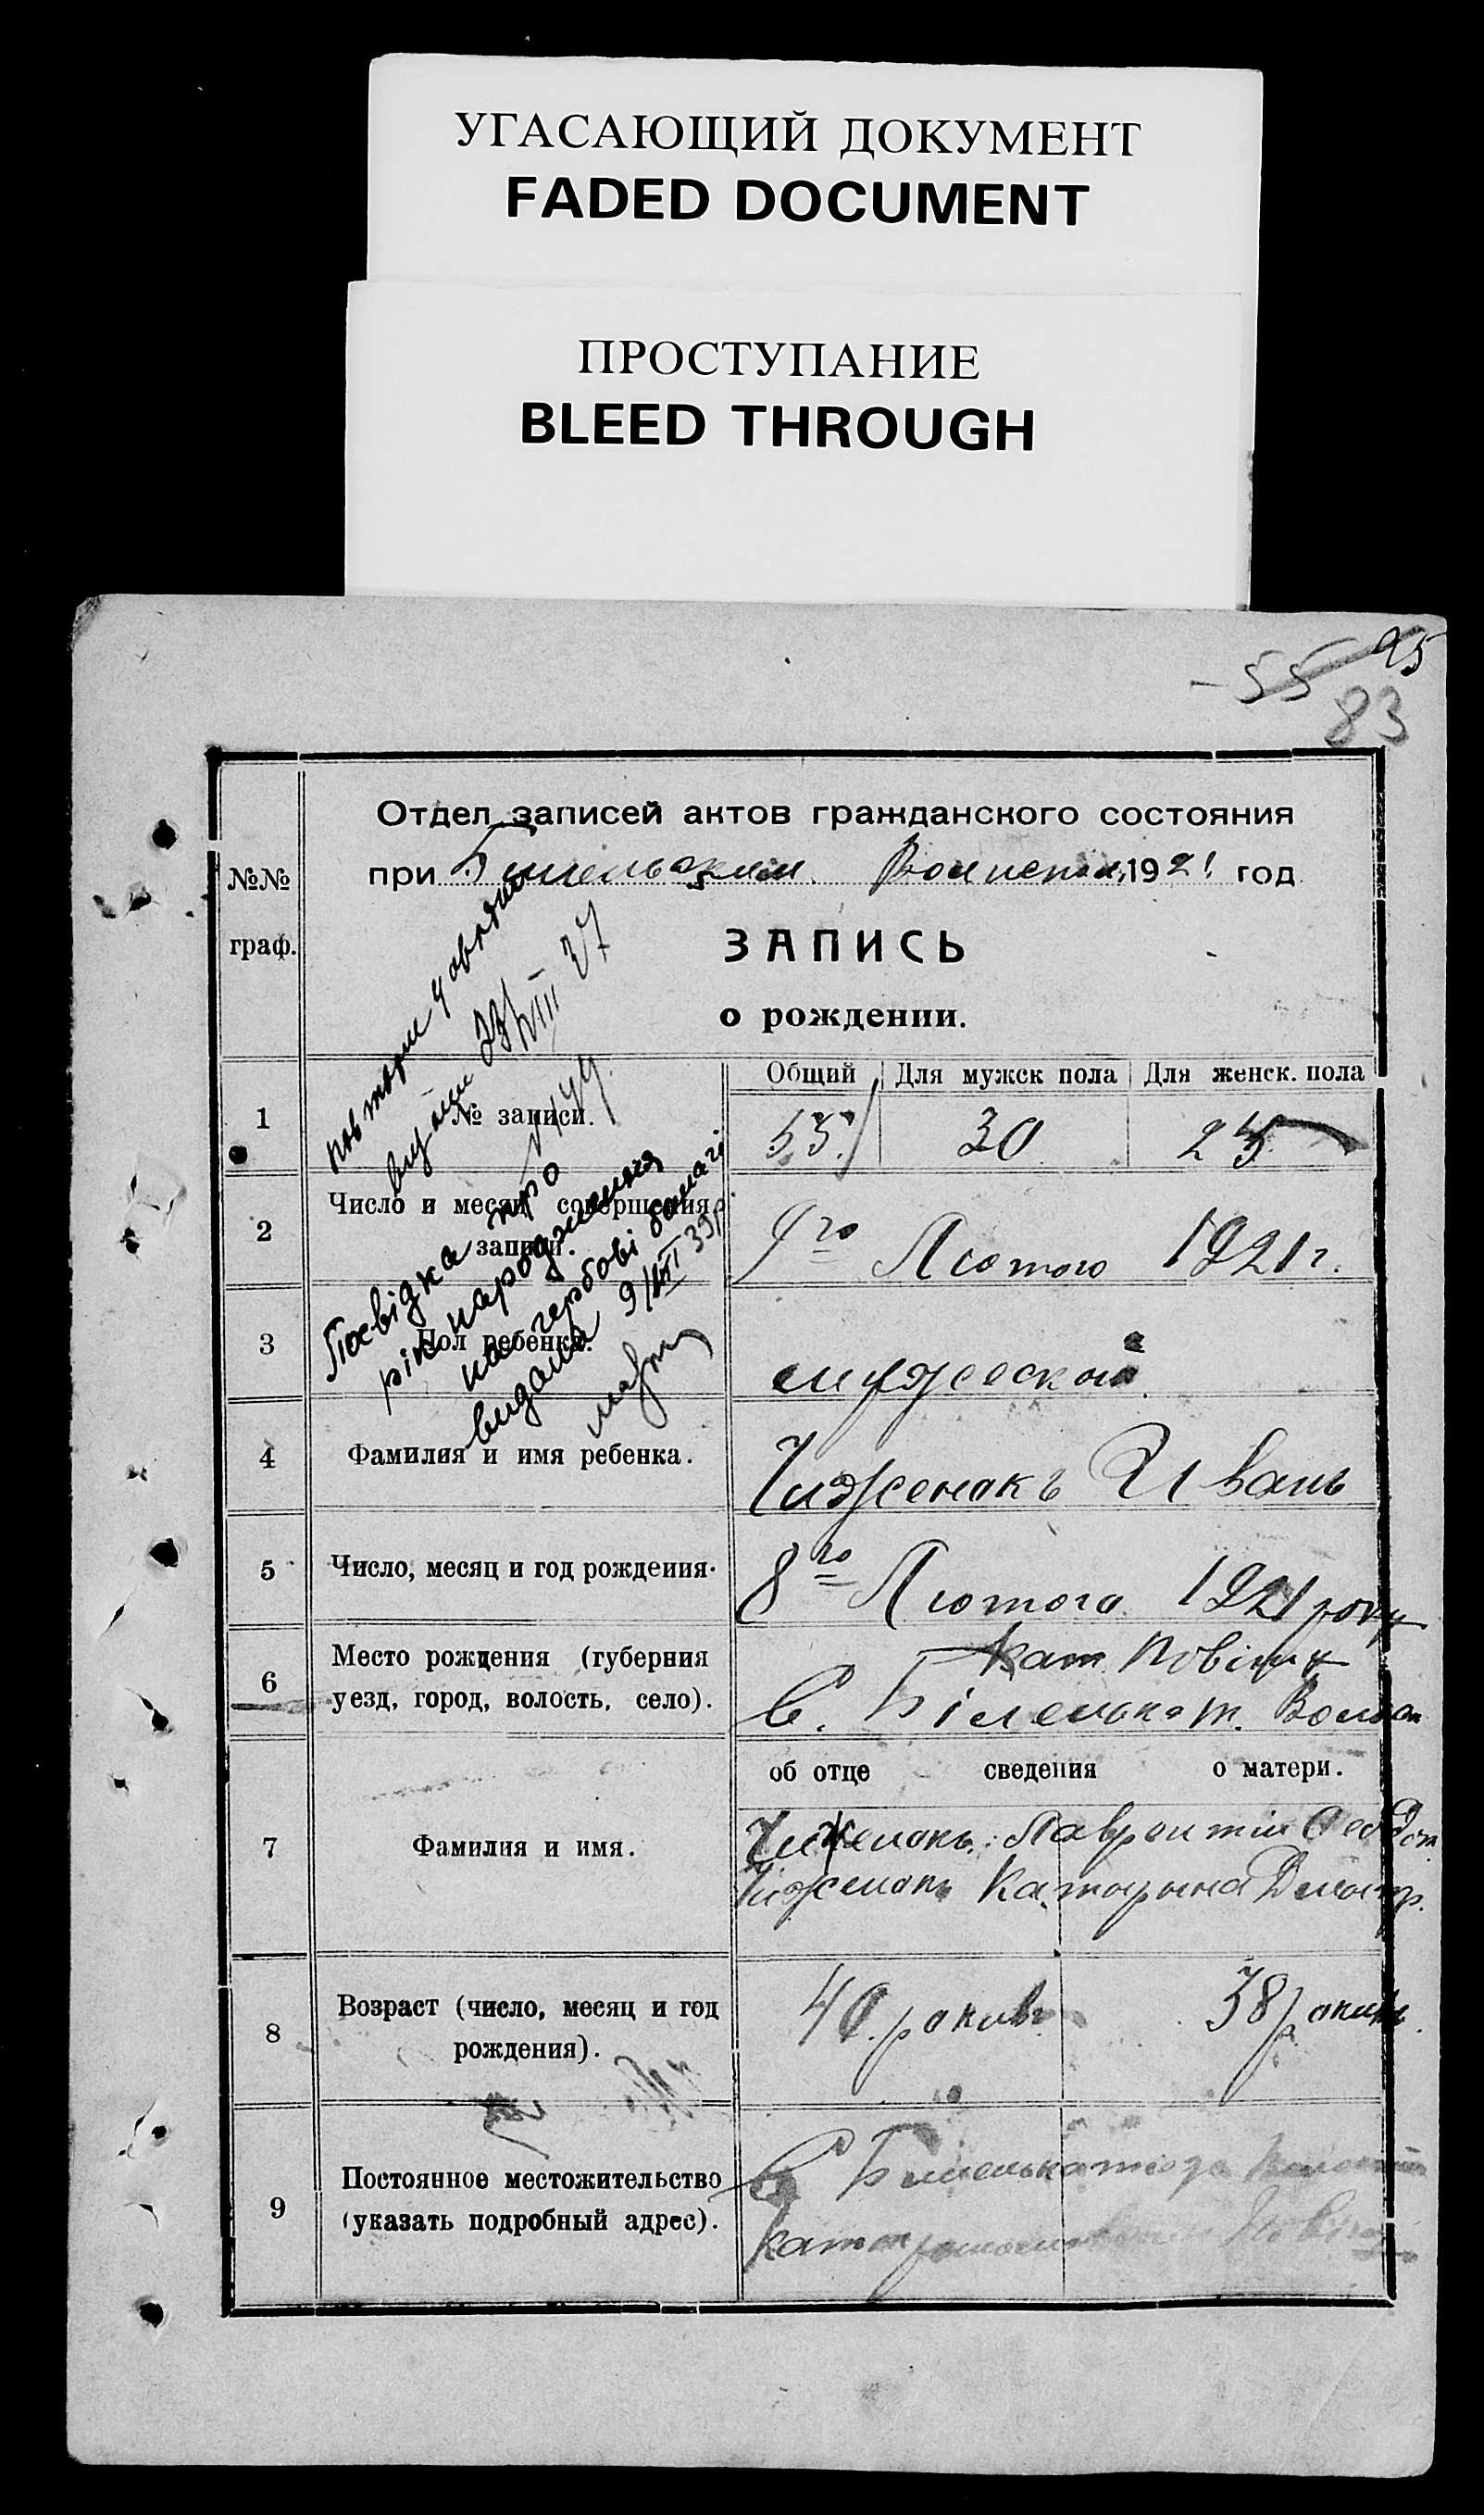 УГАСАЮЩИЙ ДОКУМЕНТ
FADED DOCUMENT
ПРОСТУПАНИЕ
BLEED THROUGH
55 95
83
Отдел записей актов гражданского состояния
при 1921 год
№№
граф.
ЗАПИСЬ
о рождении.
Общий Для мужск пола Для женск. пола
1 № записи. 55. 30 25
2 Число и месяц совершения
записи.
9го Лютого 1921 г.
3 Пол ребенка.
мужеской
4 Фамилия и имя ребенка. Чиженокъ Иванъ
5 Число, месяц и год рождения. 8го Лютого 1921 року
6 Место рождения (губерния
уезд, город, волость, село).
Кат. Повіту
С. Біленькот. Волост
об отце сведения о матери.
7 Фамилия и имя.
Чиженокъ Лаврентий Феодот.
Чиженокъ Катерина Дмитр.
8 Возраст (число, месяц и год
рождения).
40 рокивъ 38 рокивъ
9 Постоянное местожительство
(указать подробный адрес).
С.
повторн
видали 23/VIII 37
Посвідка про
рік народження
на гербові бумагі
видана 9/III 39р.